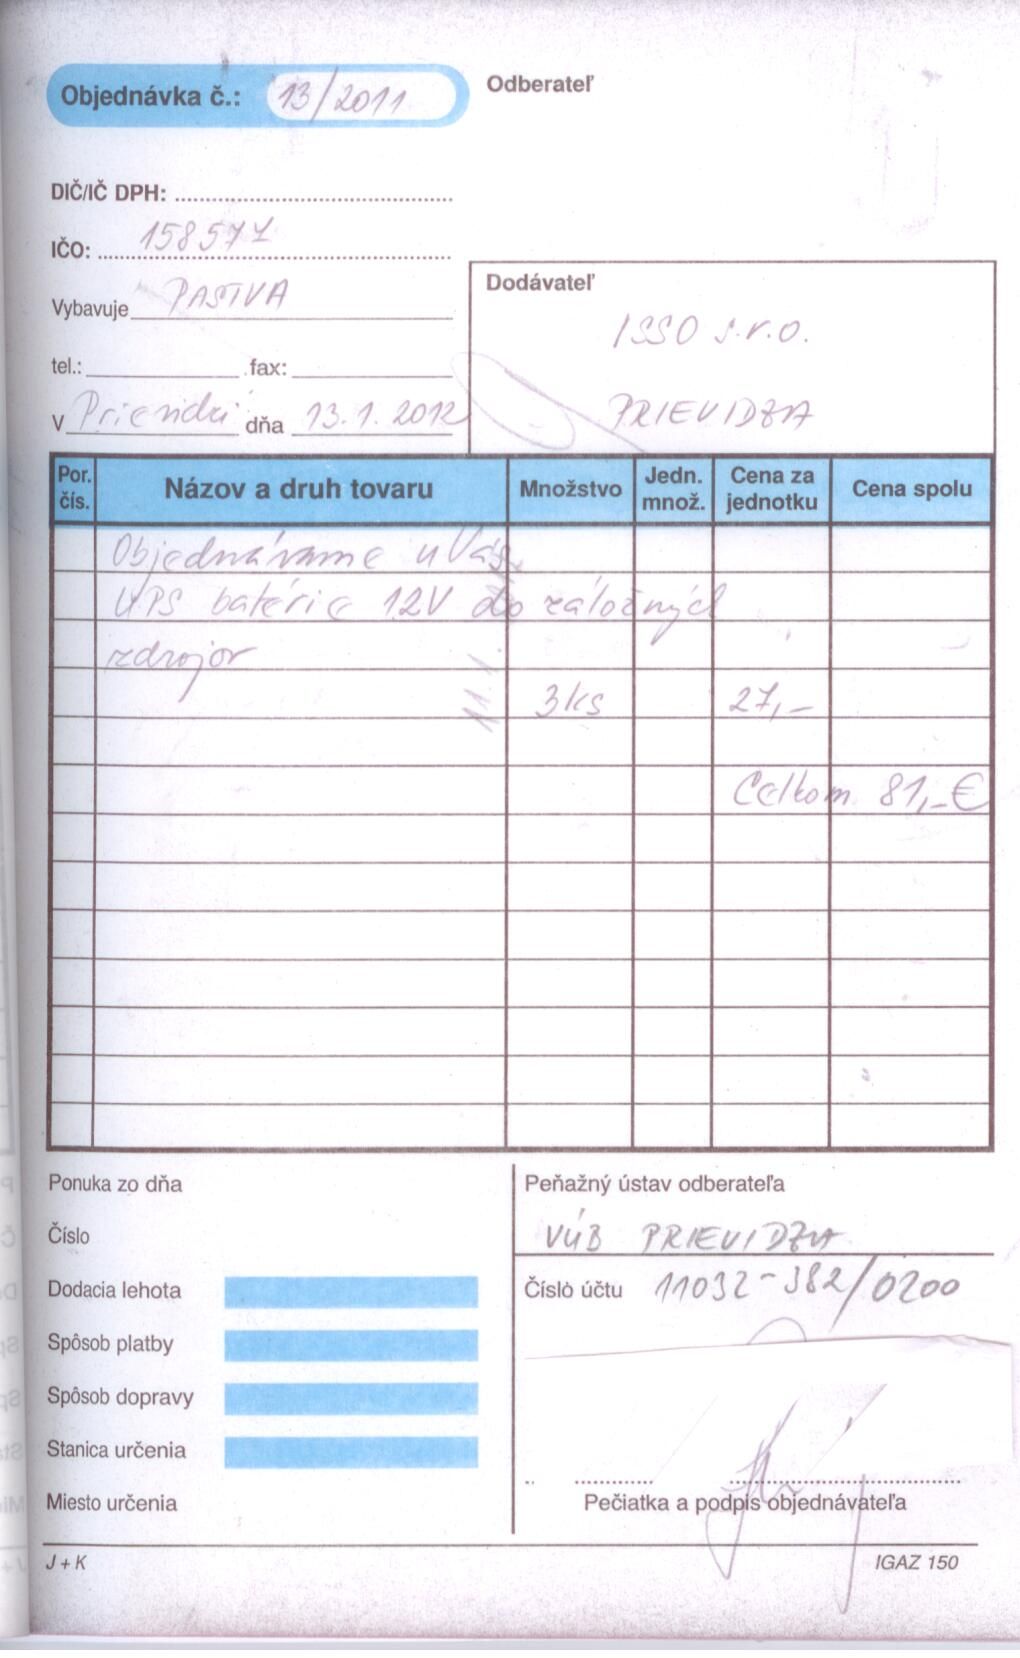 Objednávka č.: 13/2011
Odberateľ
DIČ/IČ DPH:
IČO: 158577
Vybavuje PASTVA
tel.: fax:
V Prievidzi dňa 13.1.2012
Dodávateľ
ISSO s.r.o.
PRIEVIDZA
Por. čís. Názov a druh tovaru Množstvo Jedn. množ. Cena za jednotku Cena spolu
Objednávame u Vás
UPS batérie 12V do záložných
zdrojov
3ks 27,-
Celkom 81,-€
Ponuka zo dňa
Číslo
Dodacia lehota
Spôsob platby
Spôsob dopravy
Stanica určenia
Miesto určenia
Peňažný ústav odberateľa
VÚB PRIEVIDZA
Číslo účtu 11032-382/0200
Pečiatka a podpis objednávateľa
J + K
IGAZ 150